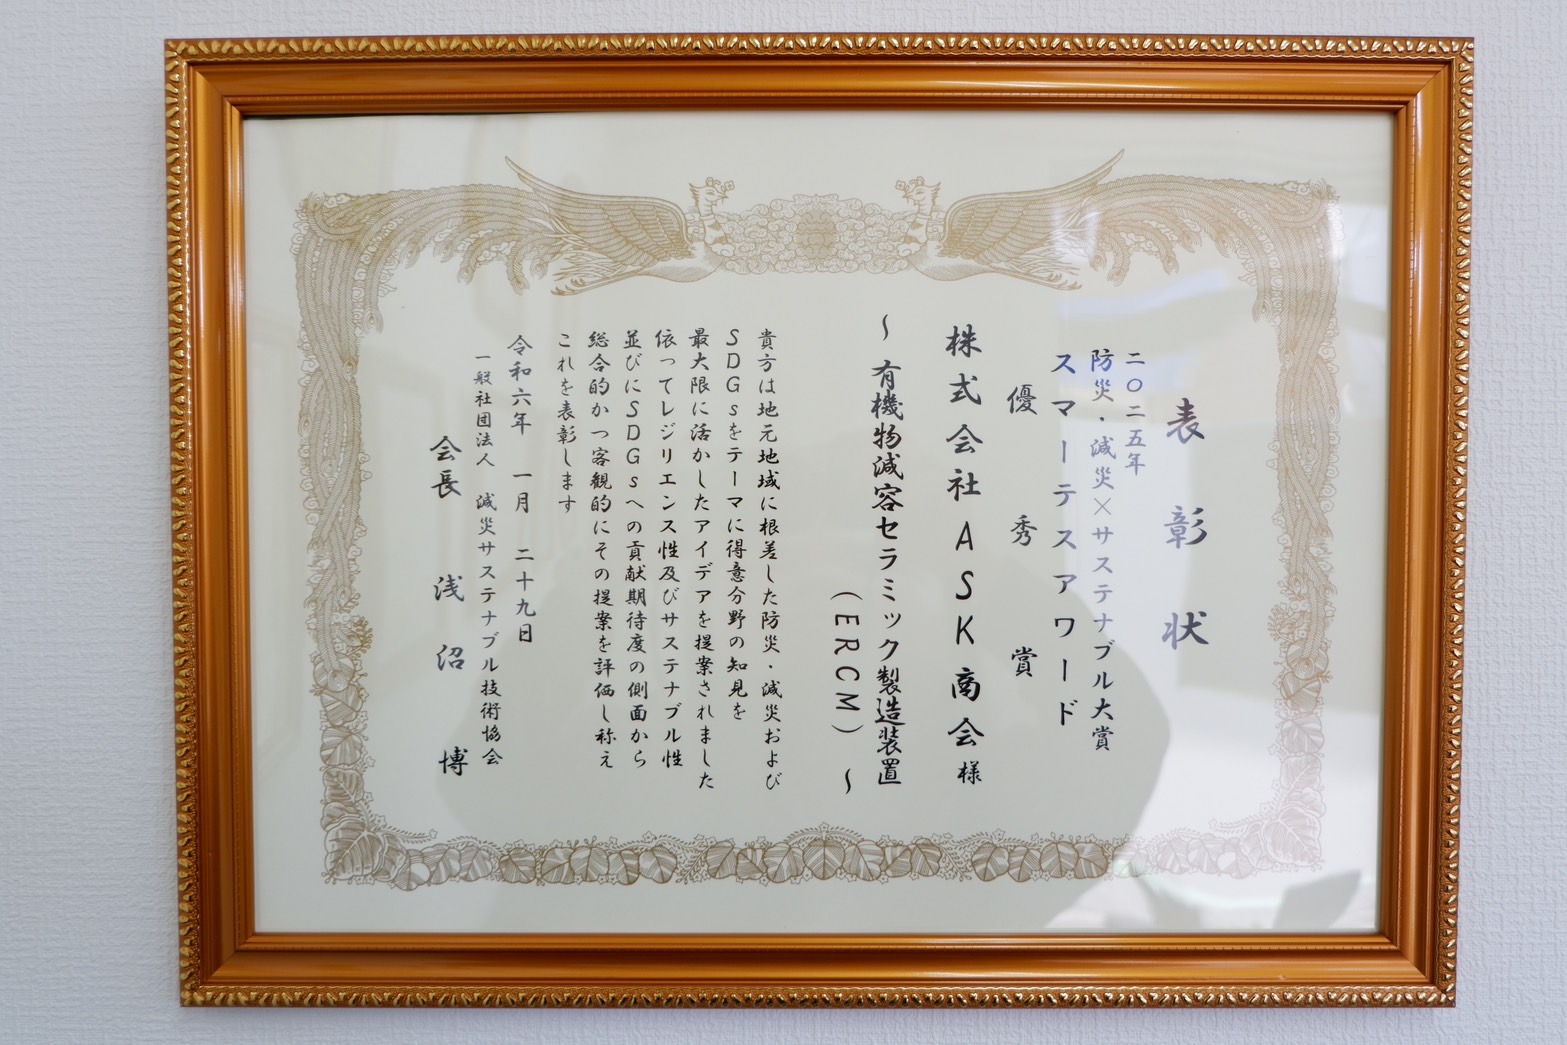 表彰状
二〇二五年
防災・減災×サステナブル大賞
スマーテスアワード
優秀賞
株式会社ASK商会様
~有機物減容セラミック製造装置
(ERCM)~
貴方は地元地域に根差した防災・減災および
SDGsをテーマに得意分野の知見を
最大限に活かしたアイデアを提案されました
依ってレジリエンス性及びサステナブル性
並びにSDGsへの貢献期待度の側面から
総合的かつ客観的にその提案を評価し称え
これを表彰します
令和六年 一月 二十九日
一般社団法人 減災サステナブル技術協会
会長 浅沼 博